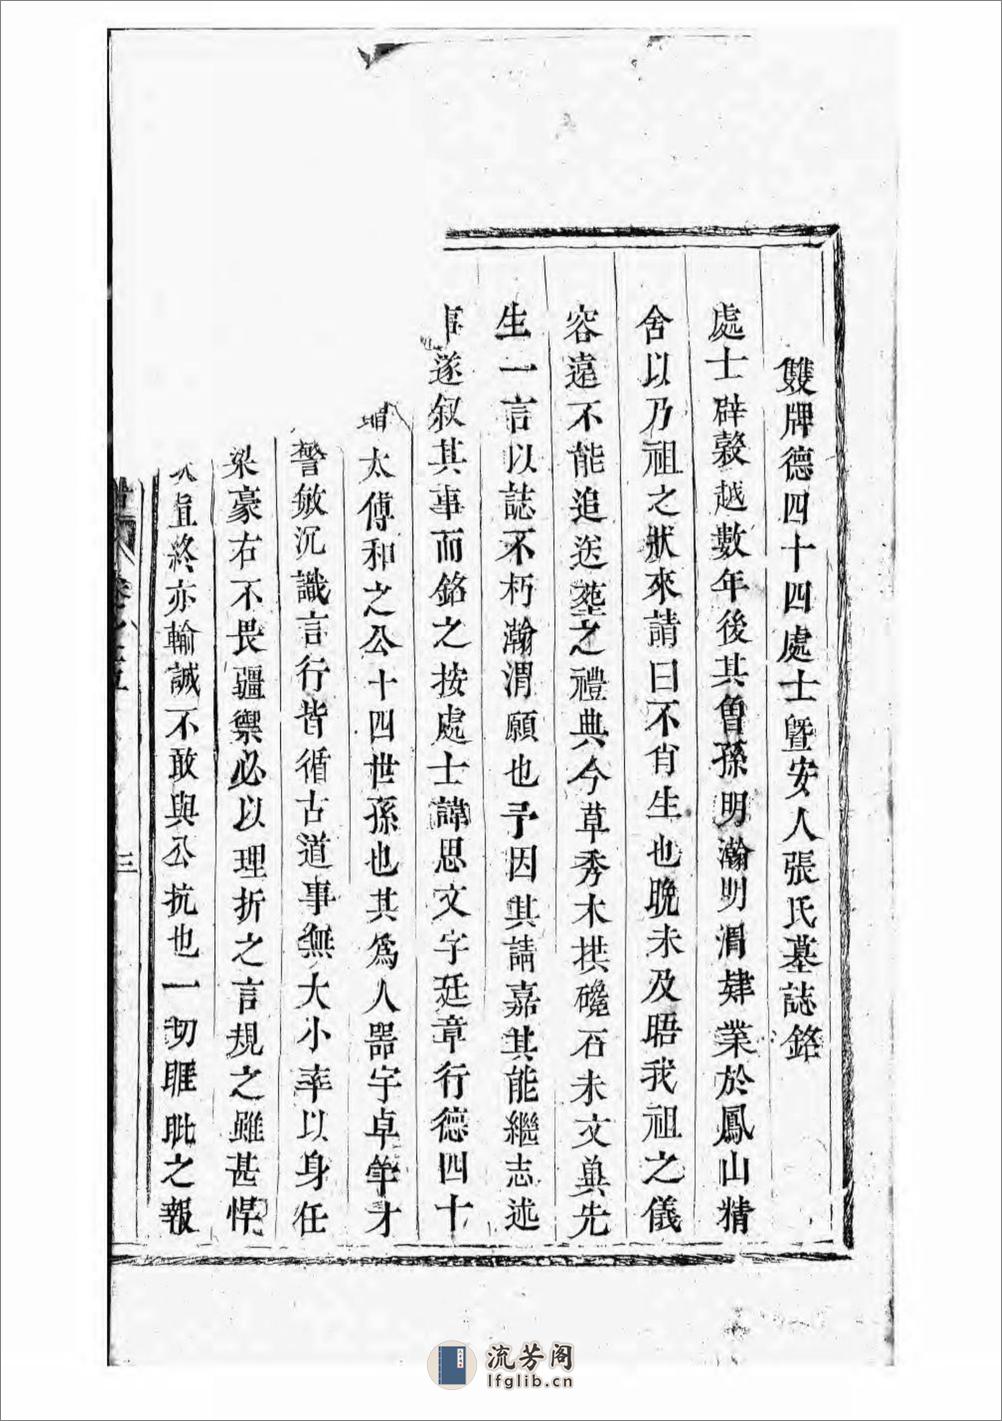 雙牌德四十四處士曁安人張氏墓誌銘
處士辟穀越數年後其曾孫明瀚明渭肄業於鳳山精
舍以乃祖之狀來請曰不肖生也晚未及晤我祖之儀
容遠不能追送塟之禮典今草秀木拱礲石未文與先
生一言以誌不朽瀚渭願也予因其請嘉其能繼志述
事遂叙其事而銘之按處士諱思文字廷章行德四十
太傅和之公十四世孫也其爲人器宇卓犖才
警敏沉識言行皆循古道事無大小率以身任
梁豪右不畏疆禦必以理折之言規之雖甚悍
直終亦輸誠不敢與公抗也一切睚眦之報
卷之五
三
流芳阁
lfglib.cn